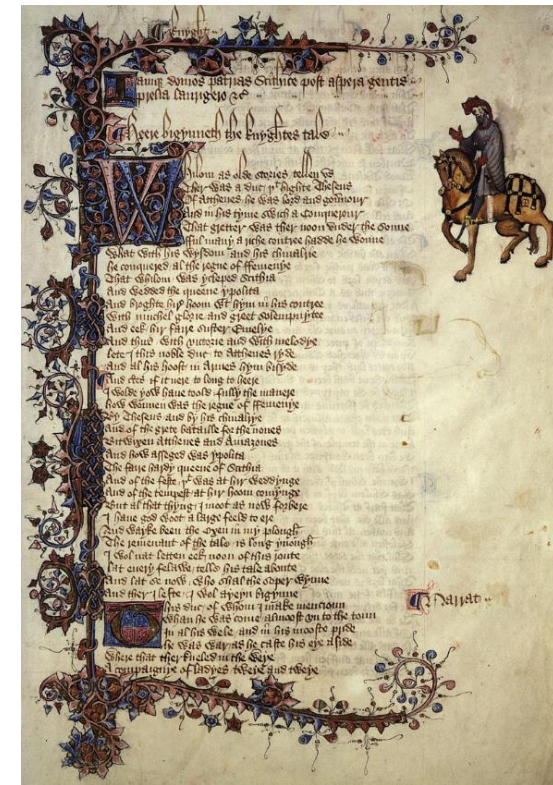 Knyght
Iamque domos patrias Scithice post aspera gentis
prelia laurigero &c
Heere bigynneth the knyghtes tale
Whilom as olde stories tellen us
Ther was a duc þt highte Theseus
Of Atthenes he was lord and gouernour
And in his tyme swich a Conquerour
That gretter was ther noon vnder the sonne
fful many a riche contree hadde he wonne
What with his wysdom and his chiualrie
he conquered al the regne of ffemenye
That whilom was ycleped Scithia
And wedded the queene ypolita
And broghte hire hoom wt hym in his contree
With muchel glorie and greet solempnytee
And eek hir faire suster Emelye
And thus with victorie and with melodye
Lete I this noble duc to Atthenes ryde
And al his hoost in Armes hym bisyde
And certes if it nere to long to heere
I wolde yow haue toold fully the manere
how wonnen was the regne of ffemenye
By Theseus and by his chiualrye
And of the grete bataille for the nones
Bitwixen Atthenes and Amazones
And how asseged was ypolita
The faire hardy queene of Scithia
And of the feste þt was at hir weddynge
And of the tempest at hir hoom comynge
But al that thyng I moot as now forbere
I haue god woot a large feeld to ere
And wayke been the Oxen in my plough
The remenant of the tale is long ynough
I wol nat letten eek noon of this route
Lat euery felawe telle his tale aboute
And lat se now who shal the soper wynne
And ther I lefte I wol ayeyn bigynne
This duc of whom I make mencioun
Whan he was come almoost vn to the toun
In al his wele and in his mooste pride
he was war as he caste his eye aside
Where that ther kneled in the weye
A compaignye of ladyes tweye and tweye
Narrat